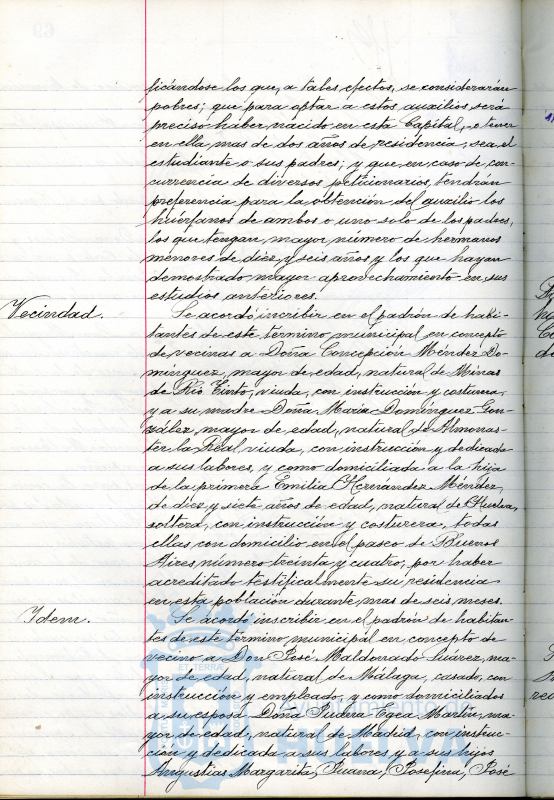 ficándose los que, a tales efectos, se considerarán
pobres; que para optar a estos auxilios será
preciso haber nacido en esta Capital, o tener
en ella mas de dos años de residencia, sea el
estudiante o sus padres; y que en caso de con-
currencia de diversos peticionarios, tendrán
preferencia para la obtención del auxilio los
huérfanos de ambos o uno solo de los padres,
los que tengan mayor número de hermanos
menores de diez y seis años y los que hayan
demostrado mayor aprovechamiento en sus
estudios anteriores.
Vecindad.
Se acordó incribir en el padrón de habi-
tantes de este término municipal en concepto
de vecinas a Doña Concepción Méndez Do-
mínguez, mayor de edad, natural de Minas
de Rio Tinto, viuda, con instrucción y costurera,
y a su madre Doña María Domínguez Gon-
zález, mayor de edad, natural de Almonas-
ter la Real, viuda, con instrucción y dedicada
a sus labores, y como domiciliada a la hija
de la primera Emilia Hernández Méndez,
de diez y siete años de edad, natural de Huelva,
soltera, con instrucción y costurera, todas
ellas con domicilio en el paseo de Buenos
Aires número treinta y cuatro, por haber
acreditado testificalmente su residencia
en esta población durante mas de seis meses.
Idem.
Se acordó inscribir en el padrón de habitan-
tes de este término municipal en concepto de
vecino a Don José Maldonado Suárez, ma-
yor de edad, natural de Málaga, casado, con
instrucción y empleado, y como domiciliados
a su esposa Doña Egea Martín, ma-
yor de edad, natural de Madrid, con instruc-
ción y dedicada a sus labores y a sus hijos
Angustias Margarita, Juana, Josefina, José